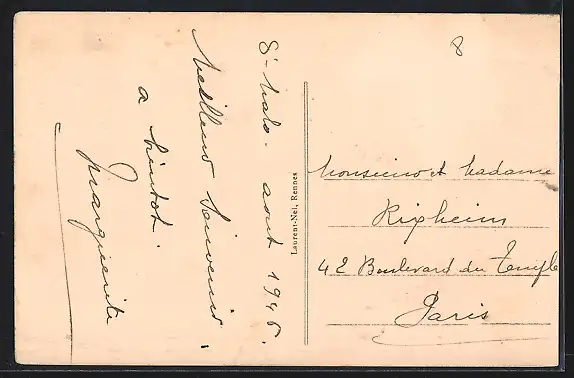 St-Malo - août 1946.
Meilleur Souvenir.
a bientot.
Marguerite
Laurent-Nel, Rennes
8
Monsieur et Madame
Rixheim
42 Boulevard du Temple
Paris